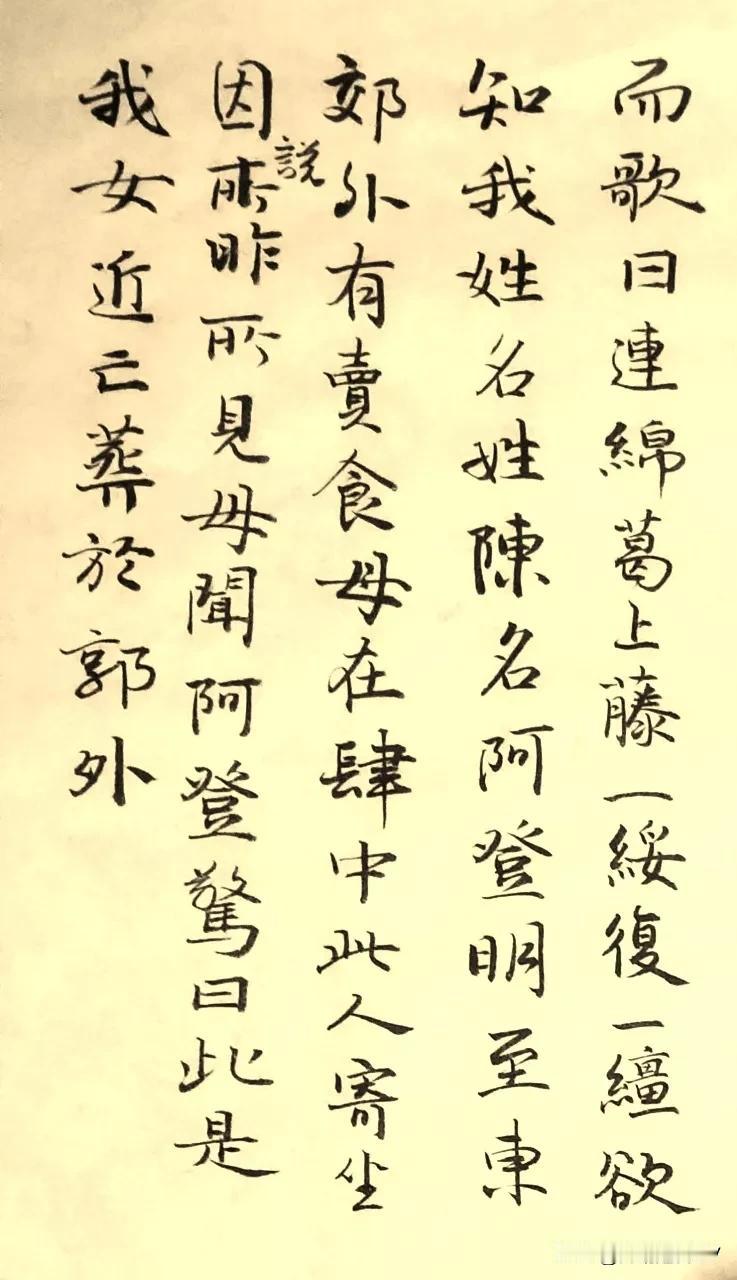 而歌曰連綿葛上藤一綏復一繮欲
知我姓名姓陳名阿登明至東
郊外有賣食母在肆中此人寄坐
因所說昨所見母聞阿登驚曰此是
我女近亡葬於郭外